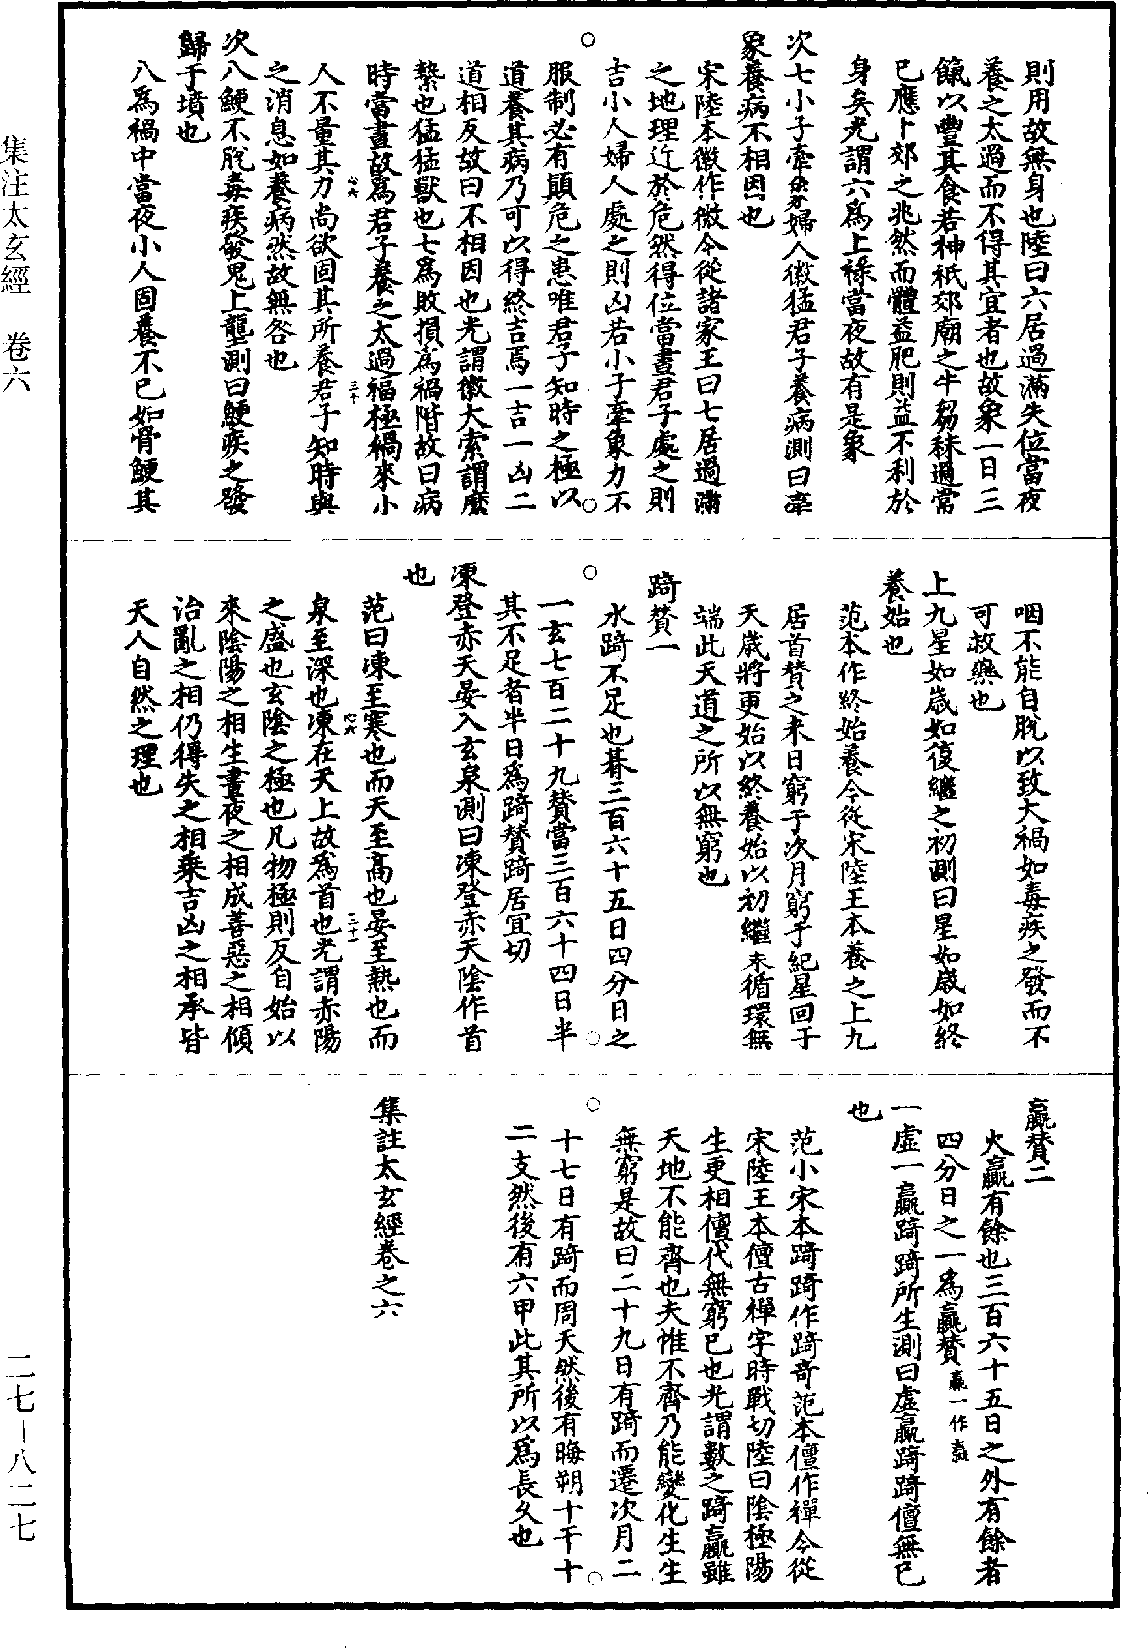 集注太玄經　卷六
則用故無身也陸曰六居過滿失位當夜
養之太過而不得其宜者也故象一日三
餼以豐其食若神祇郊廟之牛芻秣過常
已應卜郊之兆然而體益肥則益不利於
身矣光謂六爲上祿當夜故有是象
次七小子牽象婦人徽猛君子養病測曰牽
象養病不相因也
宋陸本徽作微今從諸家王曰七居過滿
之地理近於危然得位當晝君子處之則
吉小人婦人處之則凶若小子牽象力不
服制必有顛危之患唯君子知時之極以
道養其病乃可以得終吉焉一吉一凶二
道相反故曰不相因也光謂徽大索謂縻
縶也猛猛獸也七爲敗損爲禍階故曰病
時當晝故爲君子養之太過福極禍來小
人不量其力尚欲固其所養君子知時與
之消息如養病然故無咎也
次八鯁不脫毒疾發鬼上壟測曰鯁疾之發
歸于墳也
八爲禍中當夜小人固養不已如骨鯁其
咽不能自脫以致大禍如毒疾之發而不
可救藥也
上九星如歲如復繼之初測曰星如歲如終
養始也
范本作終始養今從宋陸王本養之上九
居首贊之末日窮于次月窮于紀星回于
天歲將更始以終養始以初繼末循環無
端此天道之所以無窮也
踦贊一
水踦不足也朞三百六十五日四分日之
一玄七百二十九贊當三百六十四日半
其不足者半日爲踦贊踦居宜切
凍登赤天晏入玄泉測曰凍登赤天陰作首
也
范曰凍至寒也而天至高也晏至熱也而
泉至深也凍在天上故爲首也光謂赤陽
之盛也玄陰之極也凡物極則反自始以
來陰陽之相生晝夜之相成善惡之相傾
治亂之相仍得失之相乘吉凶之相承皆
天人自然之理也
贏贊二
火贏有餘也三百六十五日之外有餘者
四分日之一爲贏贊贏一作
一虛一贏踦踦所生測曰虛贏踦踦儃無已
也
范小宋本踦踦作踦奇范本儃作禪今從
宋陸王本儃古禪字時戰切陸曰陰極陽
生更相儃代無窮已也光謂數之踦贏雖
天地不能齊也夫惟不齊乃能變化生生
無窮是故曰二十九日有踦而遷次月二
十七日有踦而周天然後有晦朔十干十
二支然後有六甲此其所以爲長久也
集註太玄經卷之六
二七－八二七